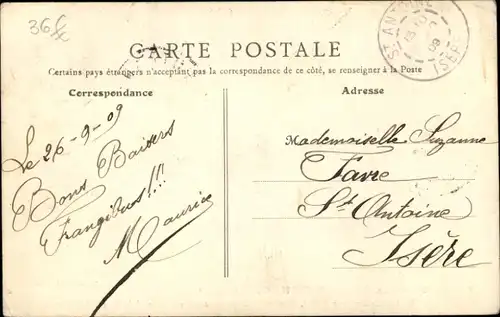 36
CARTE POSTALE
Certains pays étrangers n'acceptant pas la correspondance de ce côté, se renseigner à la Poste
Correspondance
Adresse
Le 26-9-09
Bons Baisers
Frangibus!!!
Maurice
Mademoiselle Suzanne
Favre
St Antoine
Isère
ST ANTOINE
09
ISÈRE